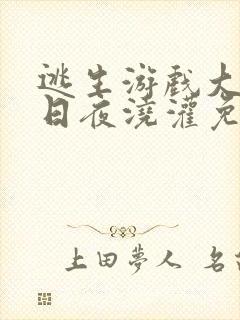 逃生游戏大
日夜浇灌免
上田夢人 名